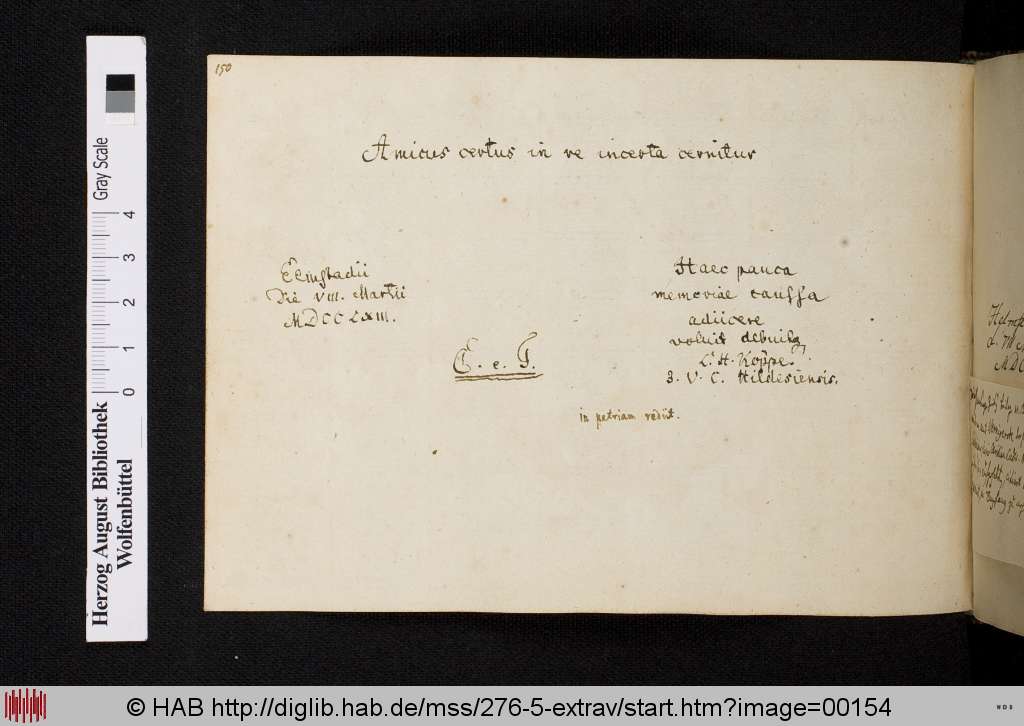 150
Amicus certus in re incerta cernitur
Die VIII. Martii
MDCCLXIII.
Haec pauca
memoriae caussa
adiicere
voluit debuitq
L. H. Koppe.
J. V. C. Hildesiensis.
in patriam rediit.
MDC
Gray Scale
0 1 2 3 4
Herzog August Bibliothek
Wolfenbüttel
© HAB http://diglib.hab.de/mss/276-5-extrav/start.htm?image=00154
WDB